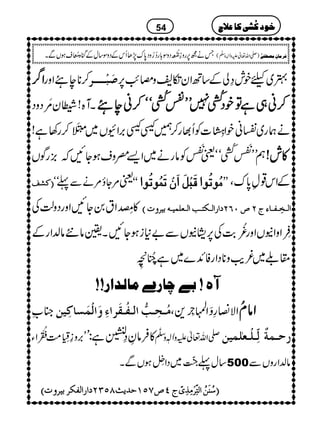 خود کشی کا علاج
54
فرمانِ مصطفےٰ (صلی اللہ تعالیٰ علیہ واٰلہ وسلم) جس نے مجھ پر روزِ جمعہ دو سو بار دُرُودِ پاک پڑھا اُس کے دو سو سال کے گناہ معاف ہوں گے۔
بہتری کیلئے خوش دِلی کے ساتھ ان تکالیف و مصائب پر صَبْر کرنا چاہئے اور اگر
کرنی ہی ہے تو خود کشی نہیں ”نفس کشی“ کرنی چاہئے۔ آہ! شیطان مردود
نے ہماری نفسانی خواہشات کو اُبھار کر ہمیں کیسی کیسی برائیوں میں مبتلا کر رکھا ہے!
کاش! ہم ”نفس کُشی“ یعنی نفس کو مارنے میں ایسے مصروف ہو جائیں کہ بزرگوں
کے اس قولِ پاک، ”مُوتُوا قَبْلَ أَنْ تَمُوتُوا“ یعنی ”مرجاؤ مرنے سے پہلے“ (کشف
الخفاء ج ٢ ص ٢٦٠ دار الکتب العلمیہ بیروت) کا مصداق بن جائیں اور دولت کی
فراوانیوں اور غُربت کی پریشانیوں سے بے نیاز ہو جائیں۔ یقین مانئے مالدار کے
مقابلے میں غریب و نادار فائدے میں ہے چنانچہ
آہ! بے چارے مالدار!!
امامُ الانصارِ وَالمہاجرین، مُحِبُّ الْفُقَراءِ وَالْمَساکِین جناب
رحمۃٌ لِّلْعٰلمین صلی اللہ تعالیٰ علیہ والہ وسلم کا فرمانِ دلنشین ہے: ”بروزِ قیامت فُقَراء
مالداروں سے 500 سال پہلے جنّت میں داخل ہوں گے۔
(سُنَنُ التِّرْمِذِی ج ٤ ص ١٥٧ حدیث ٢٣٥٨ دار الفکر بیروت)